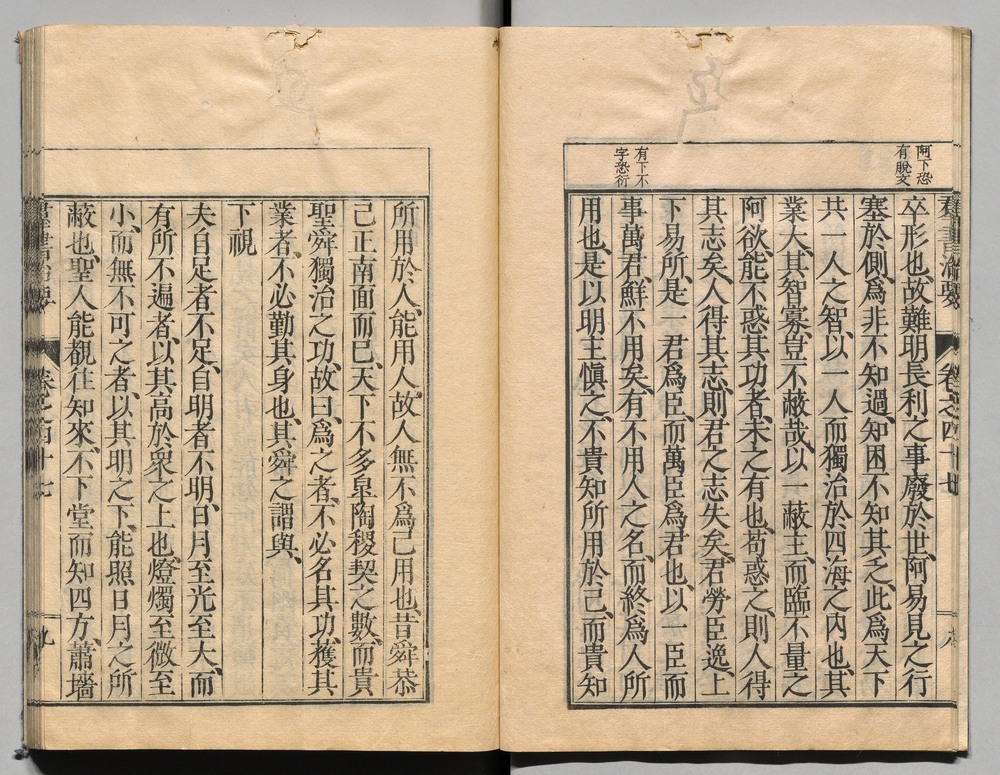 阿下恐
有脫文
有下不
字恐衍
羣書治要
卷之四十七
八
卒形也、故難明長利之事廢於世、阿易見之行
塞於側、爲非不知過、知困不知其乏、此爲天下
共一人之智、以一人而獨治於四海之內也、其
業大、其智寡、豈不蔽哉、以一蔽主、而臨不量之
阿欲、能不惑其功者、未之有也、苟惑之、則人得
其志矣、人得其志、則君之志失矣、君勞臣逸、上
下易所、是一君爲臣、而萬臣爲君也、以一臣而
事萬君、鮮不用矣、有不用人之名、而終爲人所
用也、是以明主愼之、不貴知所用於己、而貴知
所用於人、能用人、故人無不爲己用也、昔舜恭
己正南面而已、天下不多皐陶稷契之數、而貴
聖舜獨治之功、故曰、爲之者、不必名其功、獲其
業者、不必勤其身也、其舜之謂與、
下視
夫自足者不足、自明者不明、日月至光至大、而
有所不遍者、以其高於衆之上也、燈燭至微至
小、而無不可之者、以其明之下、能照日月之所
蔽也、聖人能覩往知來、不下堂而知四方、蕭墻
羣書治要
卷之四十七
九